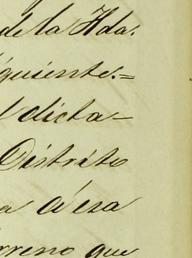 de la Hda.
iguiente.=
l dicta-
Distrito
a á esa
rreno que